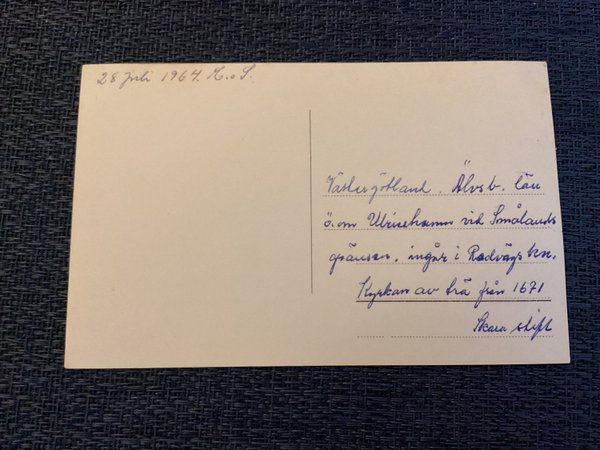 28 Juli 1964. K. o S.
Västergötland. Älvsb. län
ö. om Ulricehamn vid Smålands
gränsen, ingår i Redvägs
Kyrkan av trä från 1671
Skara stift